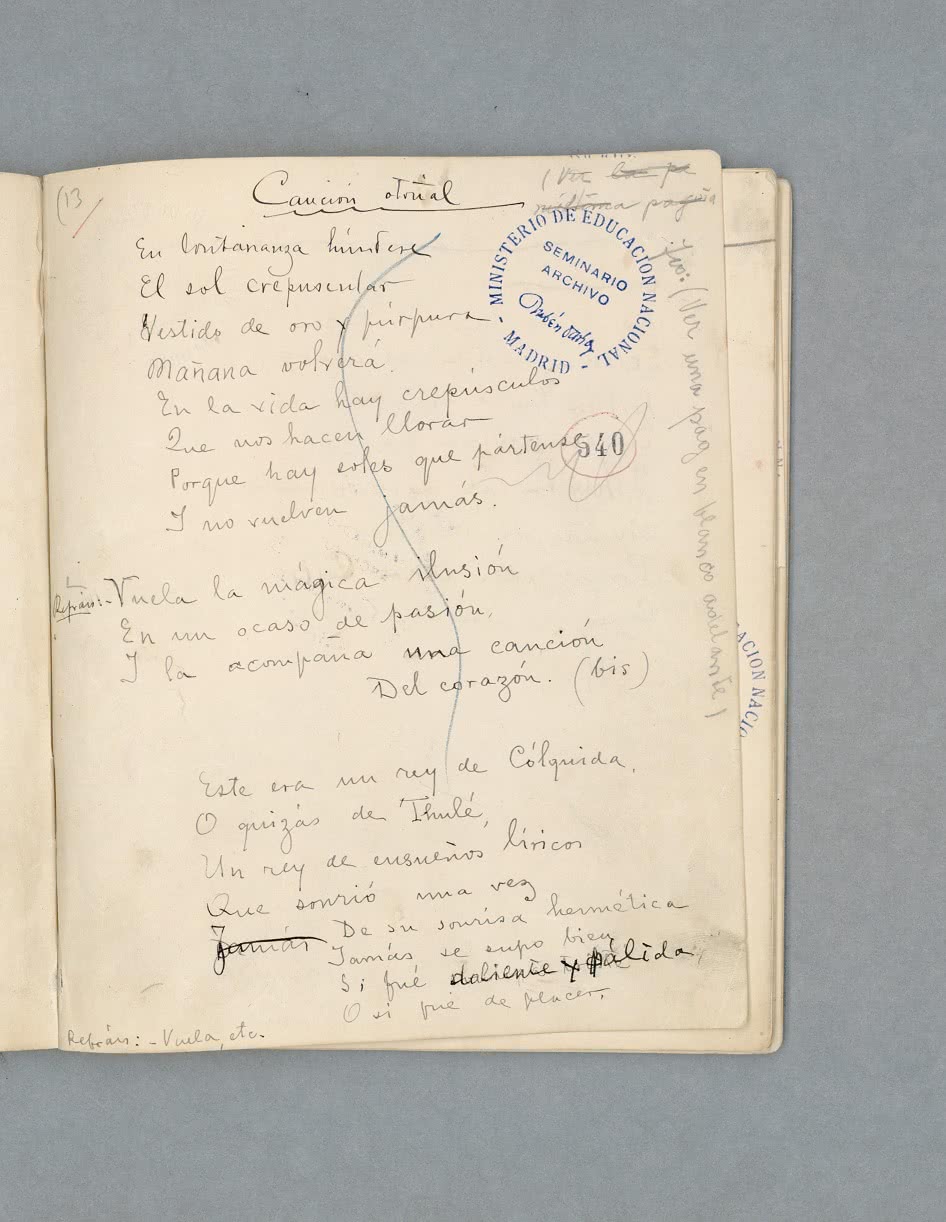 (13
Canción otoñal
(Ver la pe
núltima página
Fco: (Ver una pag en blanco adelante)
MINISTERIO DE EDUCACIÓN NACIONAL - MADRID -
SEMINARIO
ARCHIVO
Rubén Darío
En lontananza húndese
El sol crepuscular
Vestido de oro y púrpura
Mañana volverá.
En la vida hay crepúsculos
Que nos hacen llorar
Porque hay soles que pártense
540
I no vuelven jamás.
Refráis:- Vuela la mágica ilusión
En un ocaso de pasión,
I la acompaña una canción
Del corazón. (bis)
ACION NACIO
Este era un rey de Cólquida,
O quizás de Thulé,
Un rey de ensueños líricos
Que sonrió una vez
Jamás De su sonrisa hermética
Jamás se supo bien
Si fué doliente y pálida
O si fué de placer.
Refráis: - Vuela, etc.